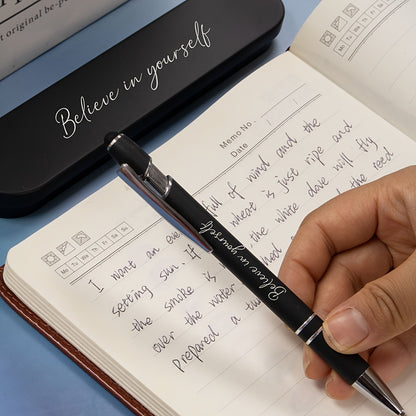 original be-p
Believe in yourself
Mo Tu We Th Fr Sa Su
Memo No.
Date / /
Mo Tu We Th Fr Sa Su
I want an eve full of wind and the
setting sun. If wheat is just ripe and
the smoke is the white dave will fly
over the water the reed
prepared a
Believe in yourself